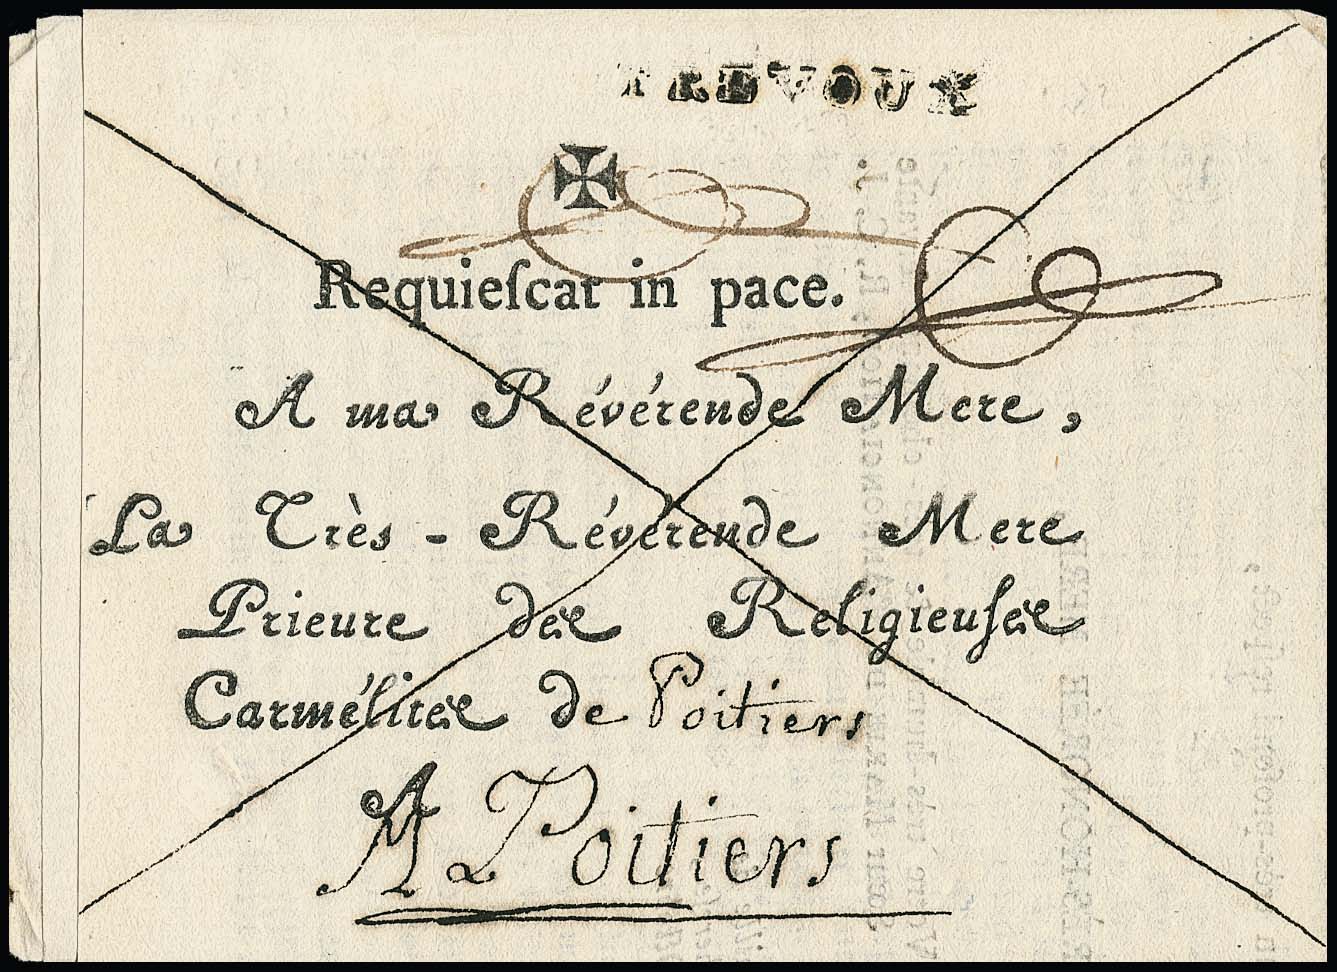 TREVOUX
✠
Requieſcat in pace.
A ma Révérende Mere,
La Très-Révérende Mere
Prieure des Religieuſes
Carmélites de Poitiers
A Poitiers